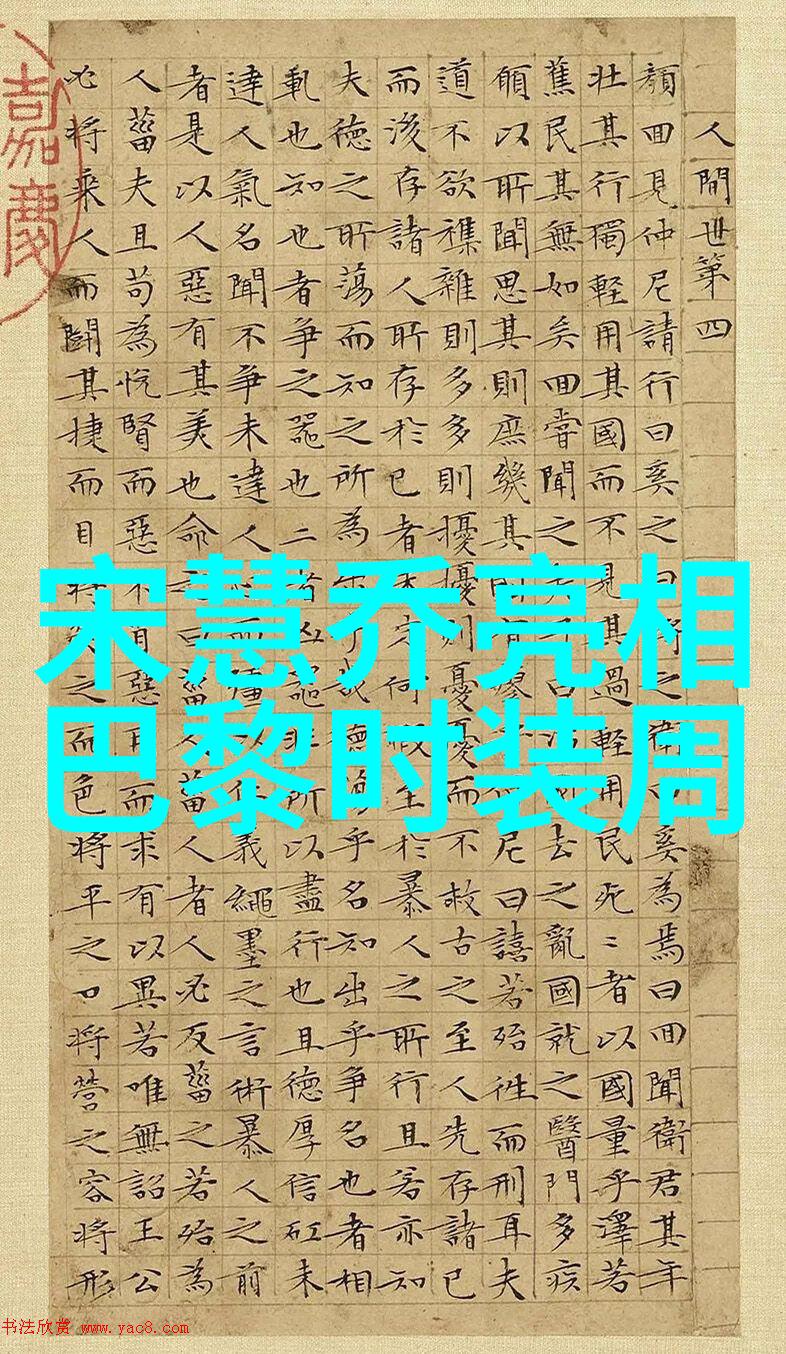 人間世第四
顏回見仲尼請行曰奚之曰將之衛曰奚為焉曰回聞衛君其年
壯其行獨輕用其國而不見其過輕用民死〻者以國量乎澤若
蕉民其無如矣回嘗聞之夫子曰治國去之亂國就之醫門多疾
願以所聞思其則庶幾其國有瘳乎仲尼曰譆若殆往而刑耳夫
道不欲襍雜則多多則擾擾則憂憂而不救古之至人先存諸已
而後存諸人所存於已者未定何暇至於暴人之所行且若亦知
夫德之所蕩而知之所為出乎哉德蕩乎名知出乎爭名也者相
軋也知也者爭之器也二者凶器非所以盡行也且德厚信矼未
達人氣名聞不爭未達人心而彊以仁義繩墨之言術暴人之前
者是以人惡有其美也命之曰菑人菑人者人必反菑之若殆為
人菑夫且苟為悅賢而惡不肖惡用而求有以異若唯無詔王公
必將乘人而鬬其捷而目將熒之而色將平之口將營之容將形
嘉慶
宋慧乔亮相
巴黎时装周
书法欣赏 www.yac8.com